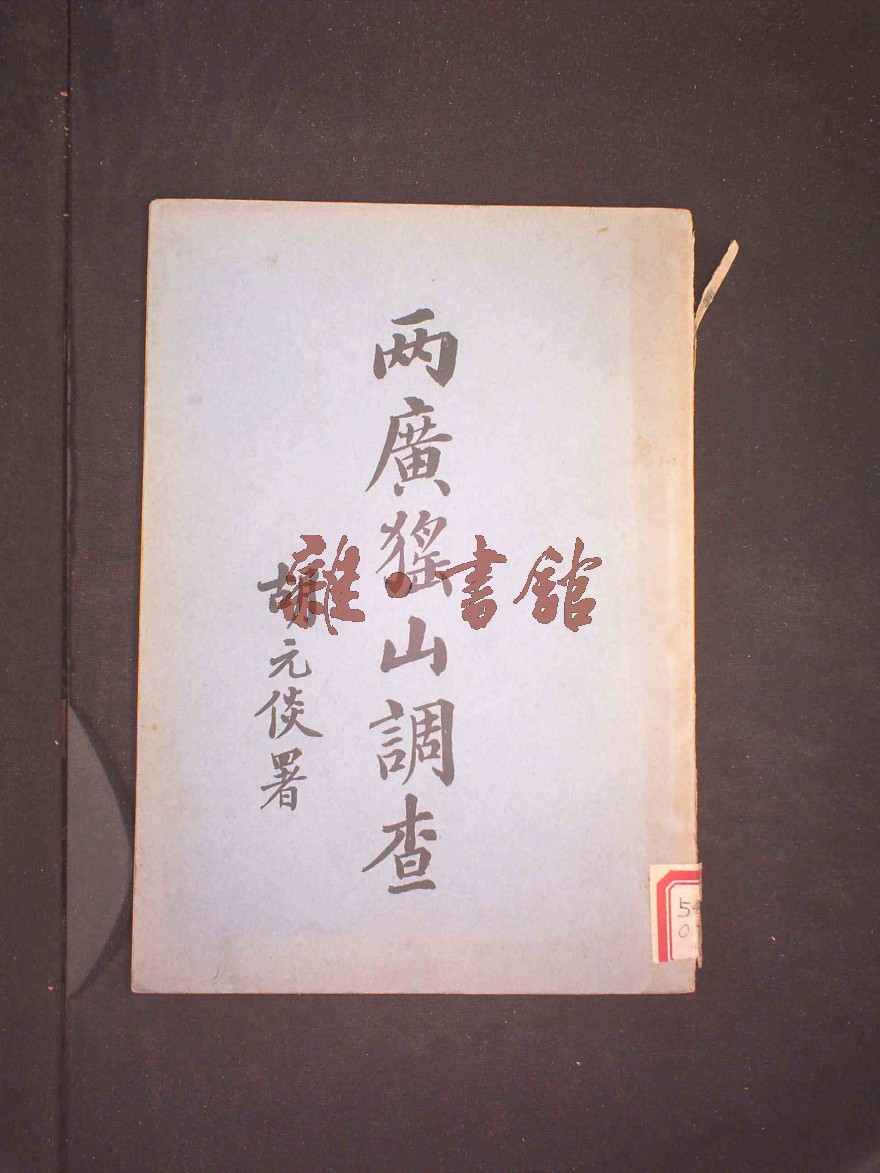 两廣猺山調查
胡元倓署
雜·書館
5
0